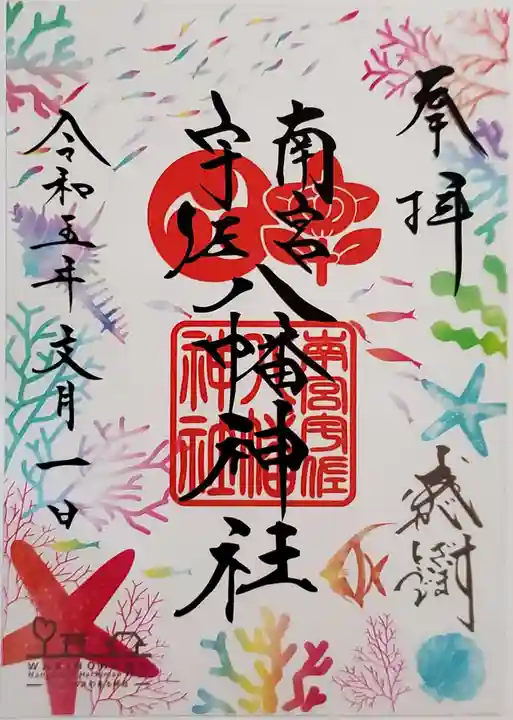 奉拝
南宮
宇佐
八幡神社
南宮宇佐
八幡
神社
令和五年文月一日
感謝
WAKINOHAMA